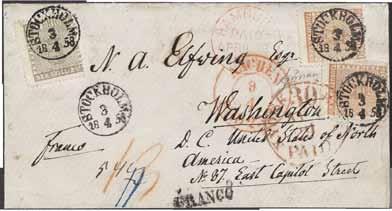 STOCKHOLM
3
18 4 58
HAMBURG
PAID
STOCKHOLM
3
18 4 58
N. A. Elfving Esqr.
STOCKHOLM
3
18 4 58
STOCKHOLM
3
18 4 58
Washington
PAID
Franco
D. C. United States of North
America
FRANCO
N: 37. East Capitol Street